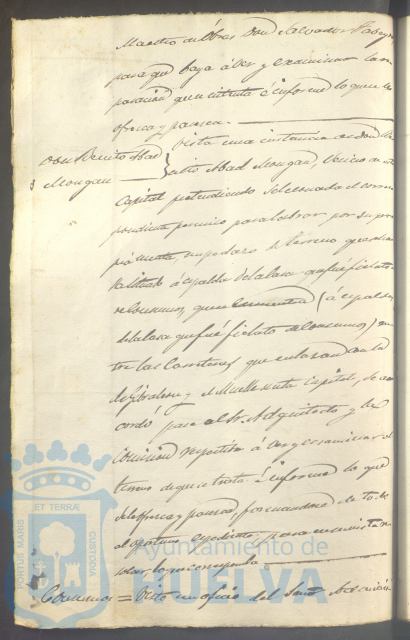 Maestro de Obras Don Salvador
para que baya á ver y examinar la re
paracion que intenta é informe lo que se le
ofrezca y paresca.
Don Benito Abad
Mongan
Vista una instancia de Don Be
nito Abad Mongan, vecino de esta
Capital pretendiendo se le conceda el corres
pondiente permiso para labrar por su pro
pia cuenta, un pedazo de terreno que
á espaldas de la casa que fué fielato
de consumos, (á espaldas
de la casa que fué fielato de consumos) en
tre las Carreteras que enlazan con la
de Gibraleon y el Muelle de esta Capital, se a
cordó pase al Sr. Arquitecto y la
Comision respectiva á ver y examinar el
terreno de que se trata é informe lo que
se le ofrezca y paresca, formandose de todo
el oportuno expediente, para en su vista re
solver lo que corresponda.
Consumos = Visto un oficio del Señor
PORTUS MARIS
ET TERRÆ
CUSTODIA
Ayuntamiento de
HUELVA